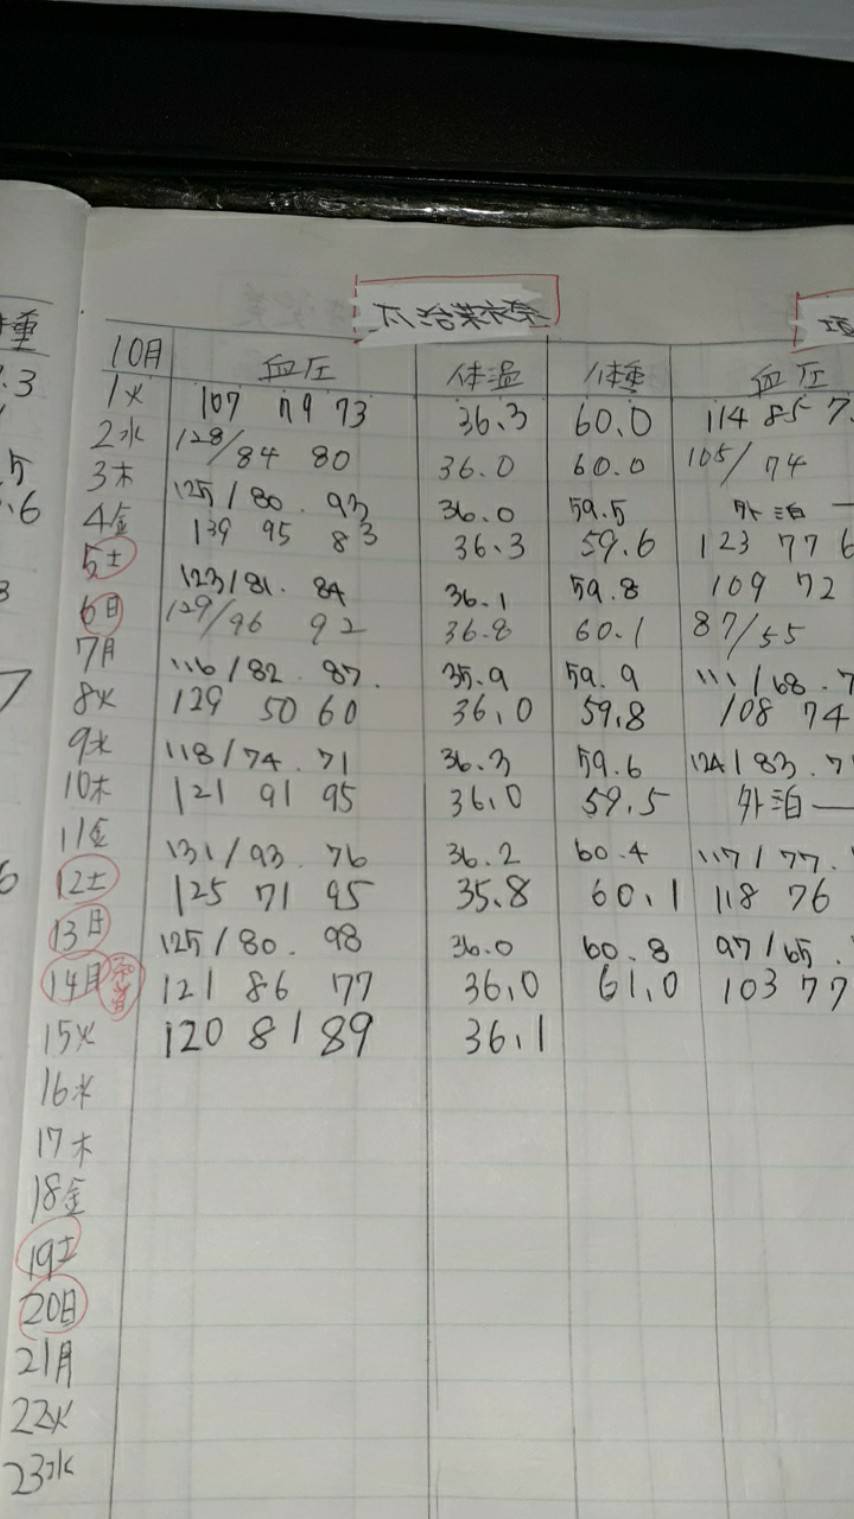 10月 血圧 体温 体種 血圧
1火 107 79 73 36.3 60.0 114 85
2水 128/84 80 36.0 60.0 105/74
3木 125/80. 93 36.0 59.5 外泊
4金 139 95 83 36.3 59.6 123 77 6
5土 123/81. 84 36.1 59.8 109 72
6日 129/96 92 36.8 60.1 87/55
7月 116/82. 87. 35.9 59.9 111/68.7
8火 129 50 60 36.0 59.8 108 74
9水 118/74. 71 36.3 59.6 124/83.7
10木 121 91 95 36.0 59.5 外泊
11金 131/93. 76 36.2 60.4 117/77.
12土 125 71 95 35.8 60.1 118 76
13日 125/80. 98 36.0 60.8 97/65.
14月 121 86 77 36.0 61.0 103 77
15火 120 81 89 36.1
16水
17木
18金
19土
20日
21月
22火
23水